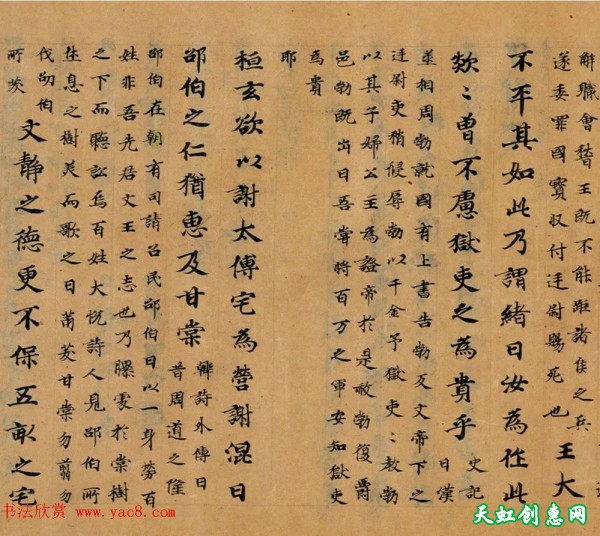 解職會稽王既不能距諸侯之兵
遂委罪國寶収付廷尉賜死也
王大
不平其如此乃謂緒曰汝為此
欻〻曽不慮獄吏之為貴乎
史記
曰漢
丞相周勃就國有上書告勃反文帝下之
廷尉吏稍侵辱勃以千金予獄吏〻教勃
以其子婦公主為證帝於是赦勃復爵
邑勃既出曰吾嘗將百万之軍安知獄吏
為貴
耶
桓玄欲以謝太傅宅為營謝混曰
邵伯之仁猶惠及甘棠
韓詩外傳曰
昔周道之隆
邵伯在朝有司請召民邵伯曰以一身勞百
姓非吾先君文王之志也乃曝處於棠樹
之下而聽訟焉百姓大悅詩人見邵伯所
坐息之樹美而歌之曰莆茇甘棠勿翦勿
伐邵伯
所茇
文靜之德更不保五畝之宅
书法欣赏 www.yac8.com
天虹创惠网